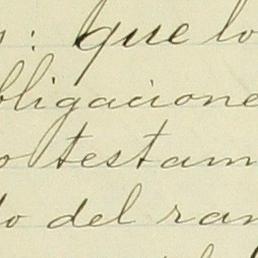 : que lo
bligacione
o testam
do del ram